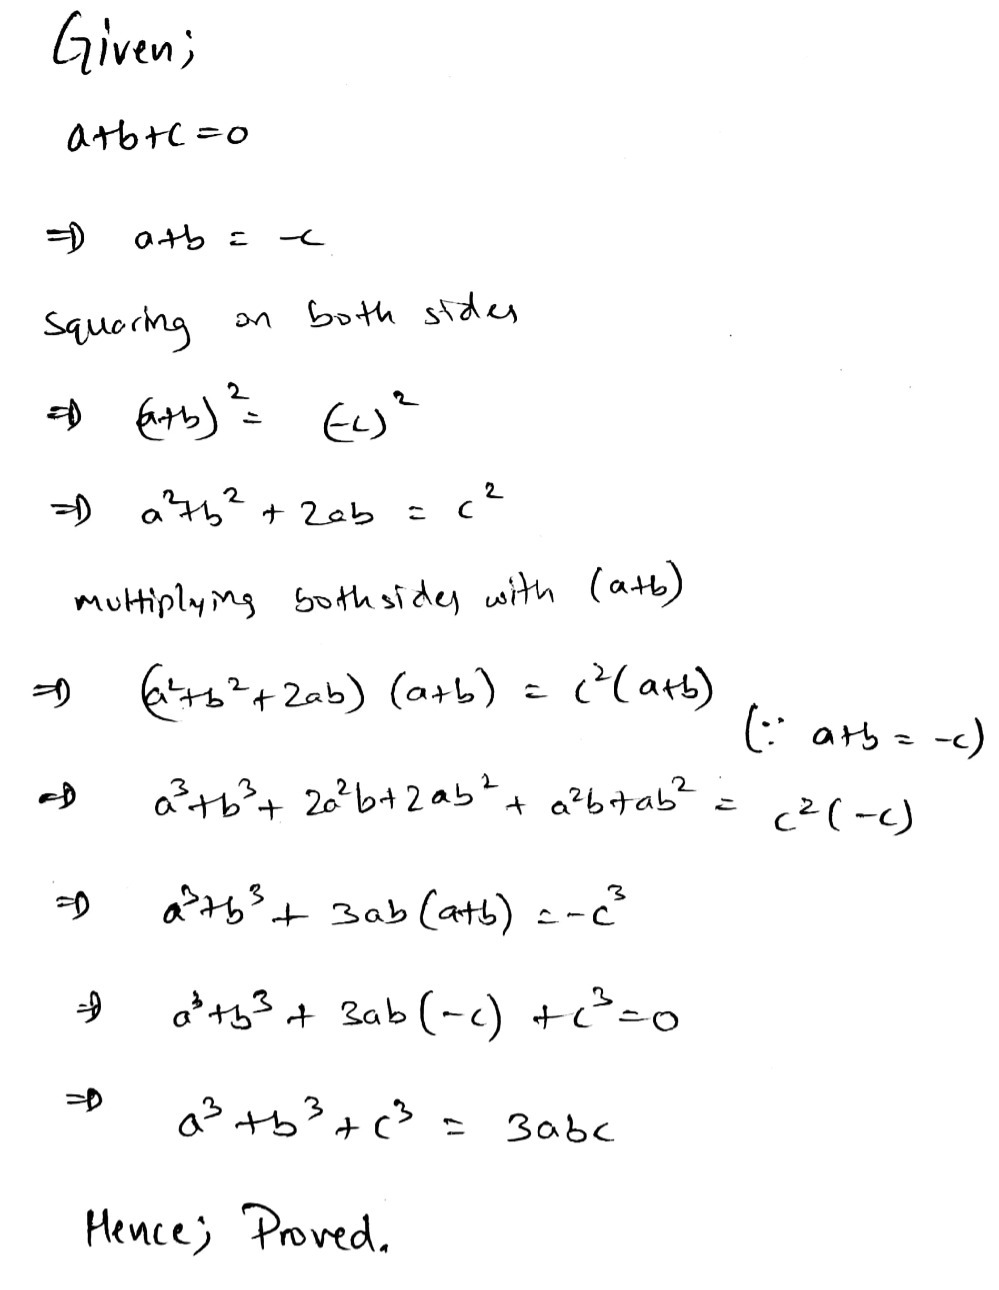 Given;
a+b+c=0
⇒ a+b = -c
Squaring on both sides
⇒ (a+b)² = (-c)²
⇒ a²+b² + 2ab = c²
multiplying both sides with (a+b)
⇒ (a²+b²+2ab) (a+b) = c²(a+b)
(∵ a+b = -c)
⇒ a³+b³+ 2a²b+2ab² + a²b+ab² = c²(-c)
⇒ a³+b³+ 3ab(a+b) = -c³
⇒ a³+b³+ 3ab(-c) +c³=0
⇒ a³+b³+c³ = 3abc
Hence; Proved.